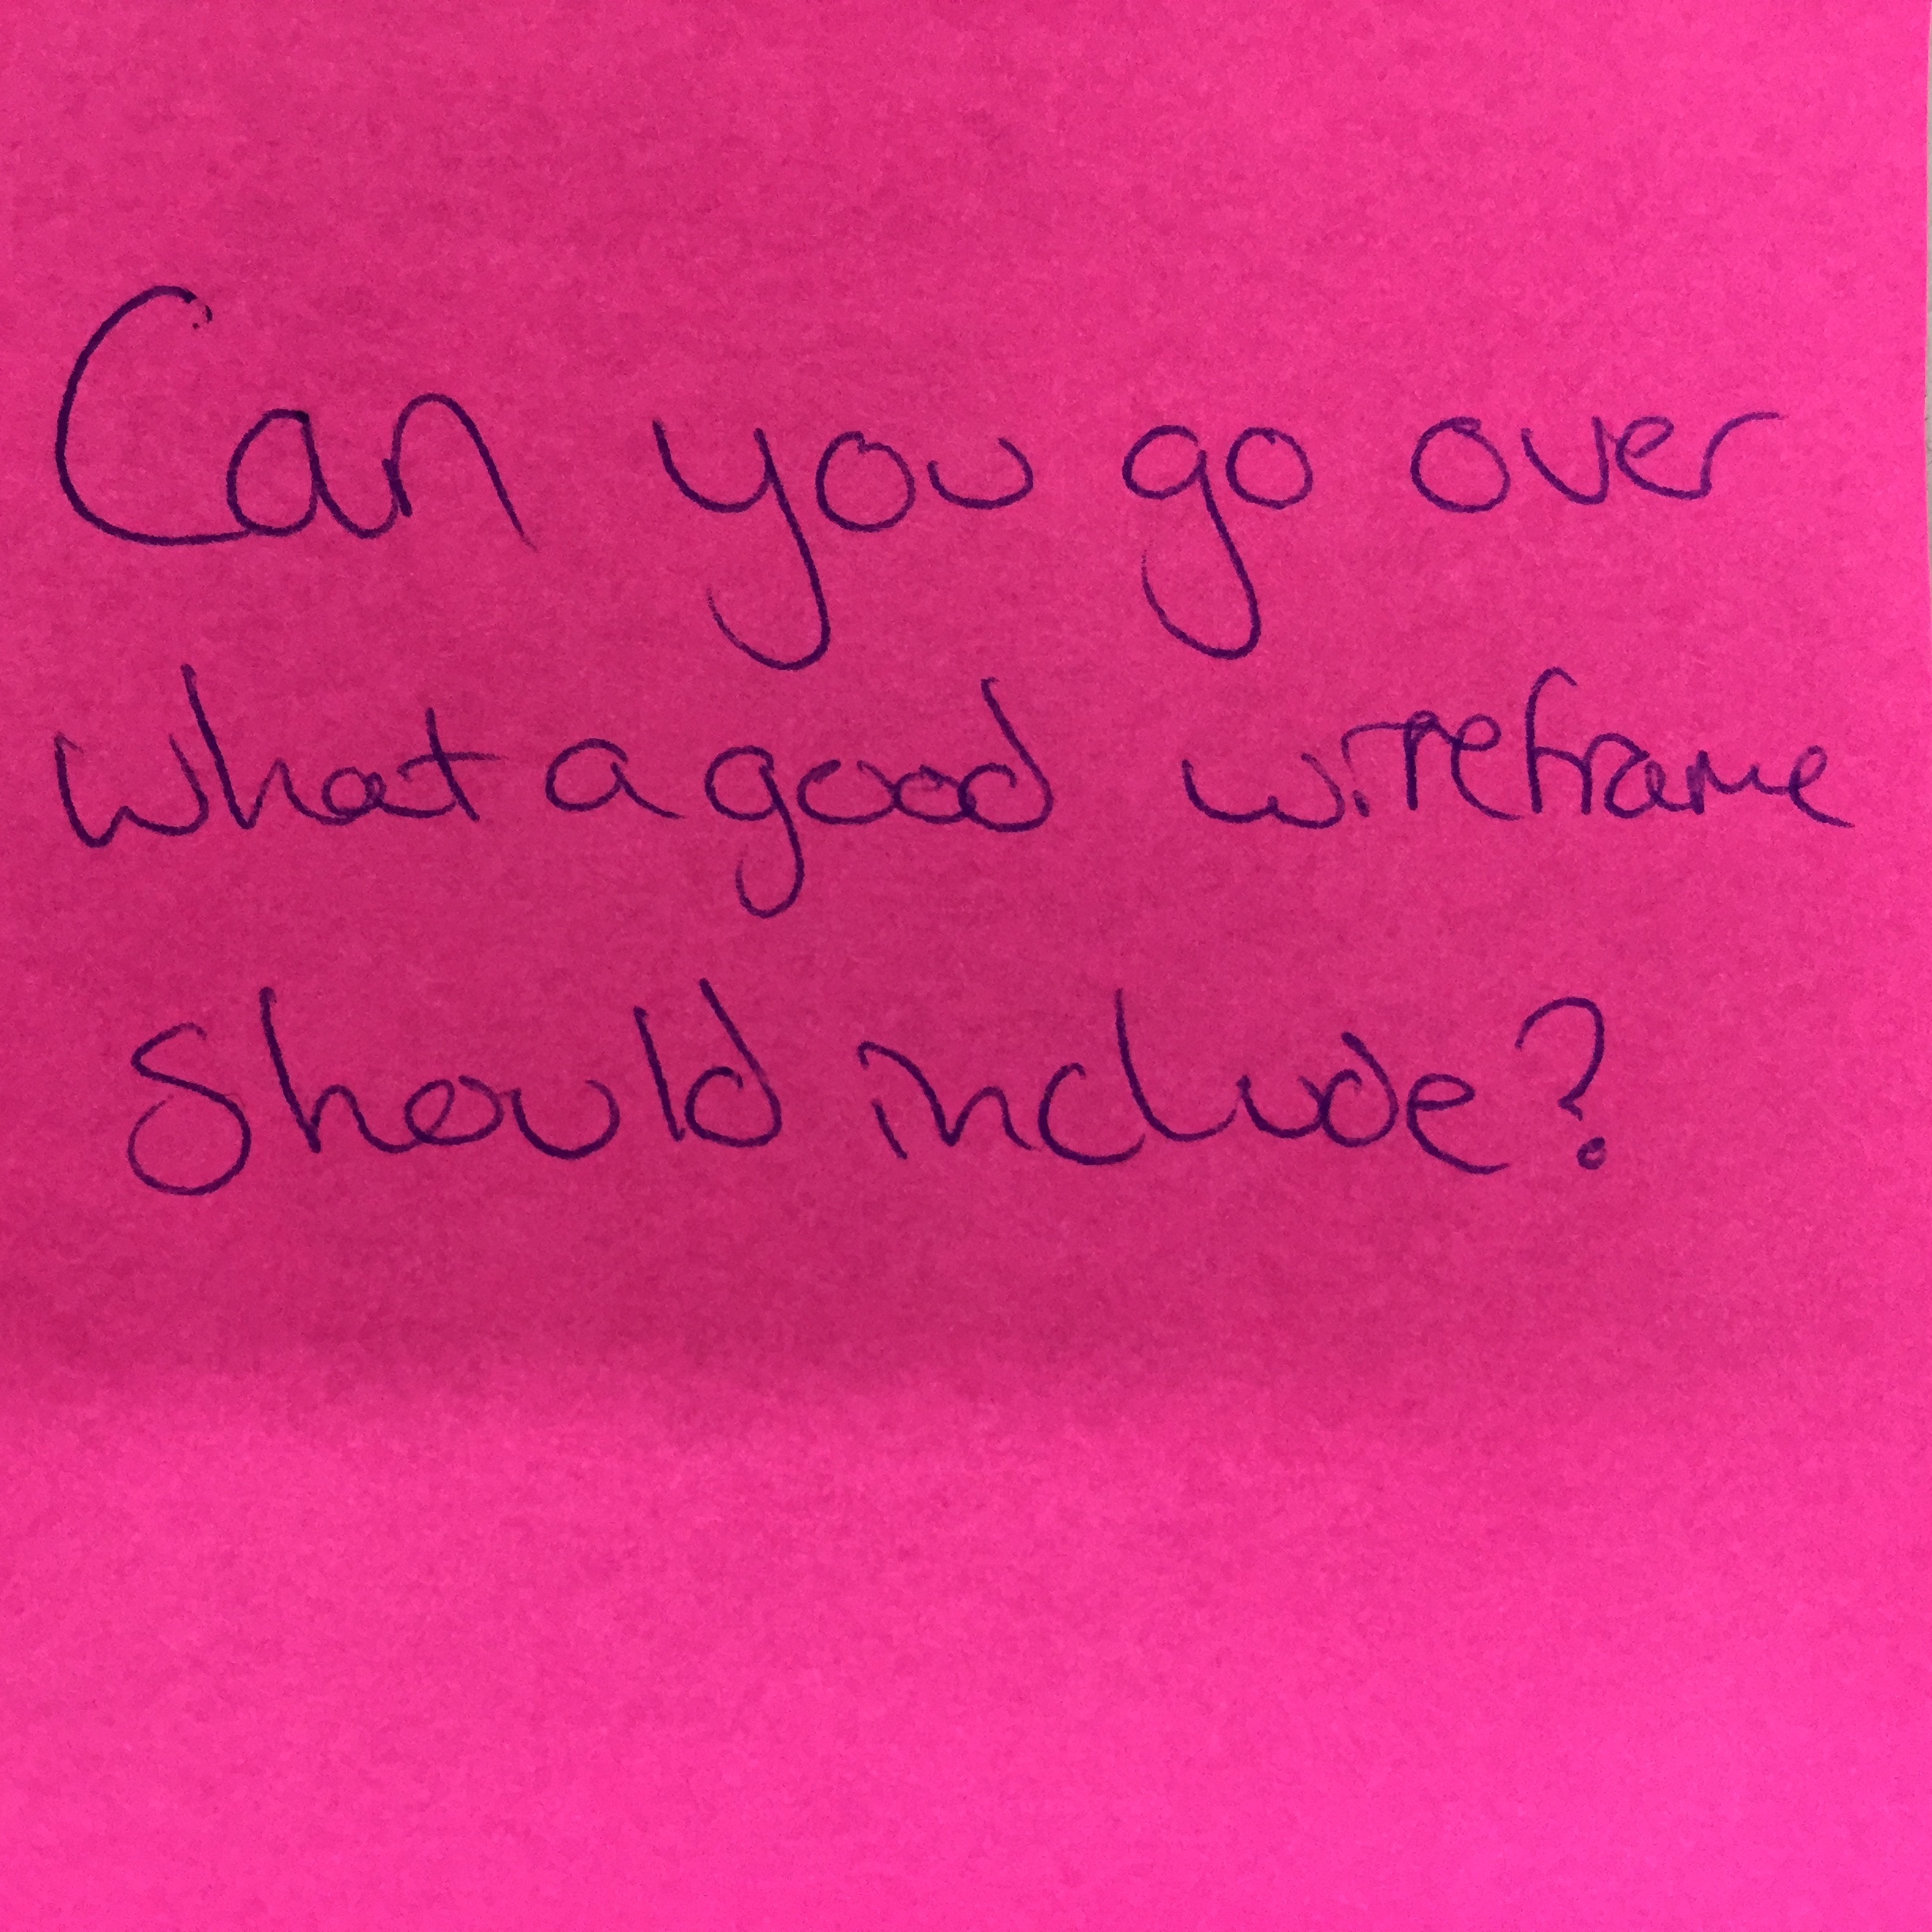 Can you go over
what a good wireframe
should include?